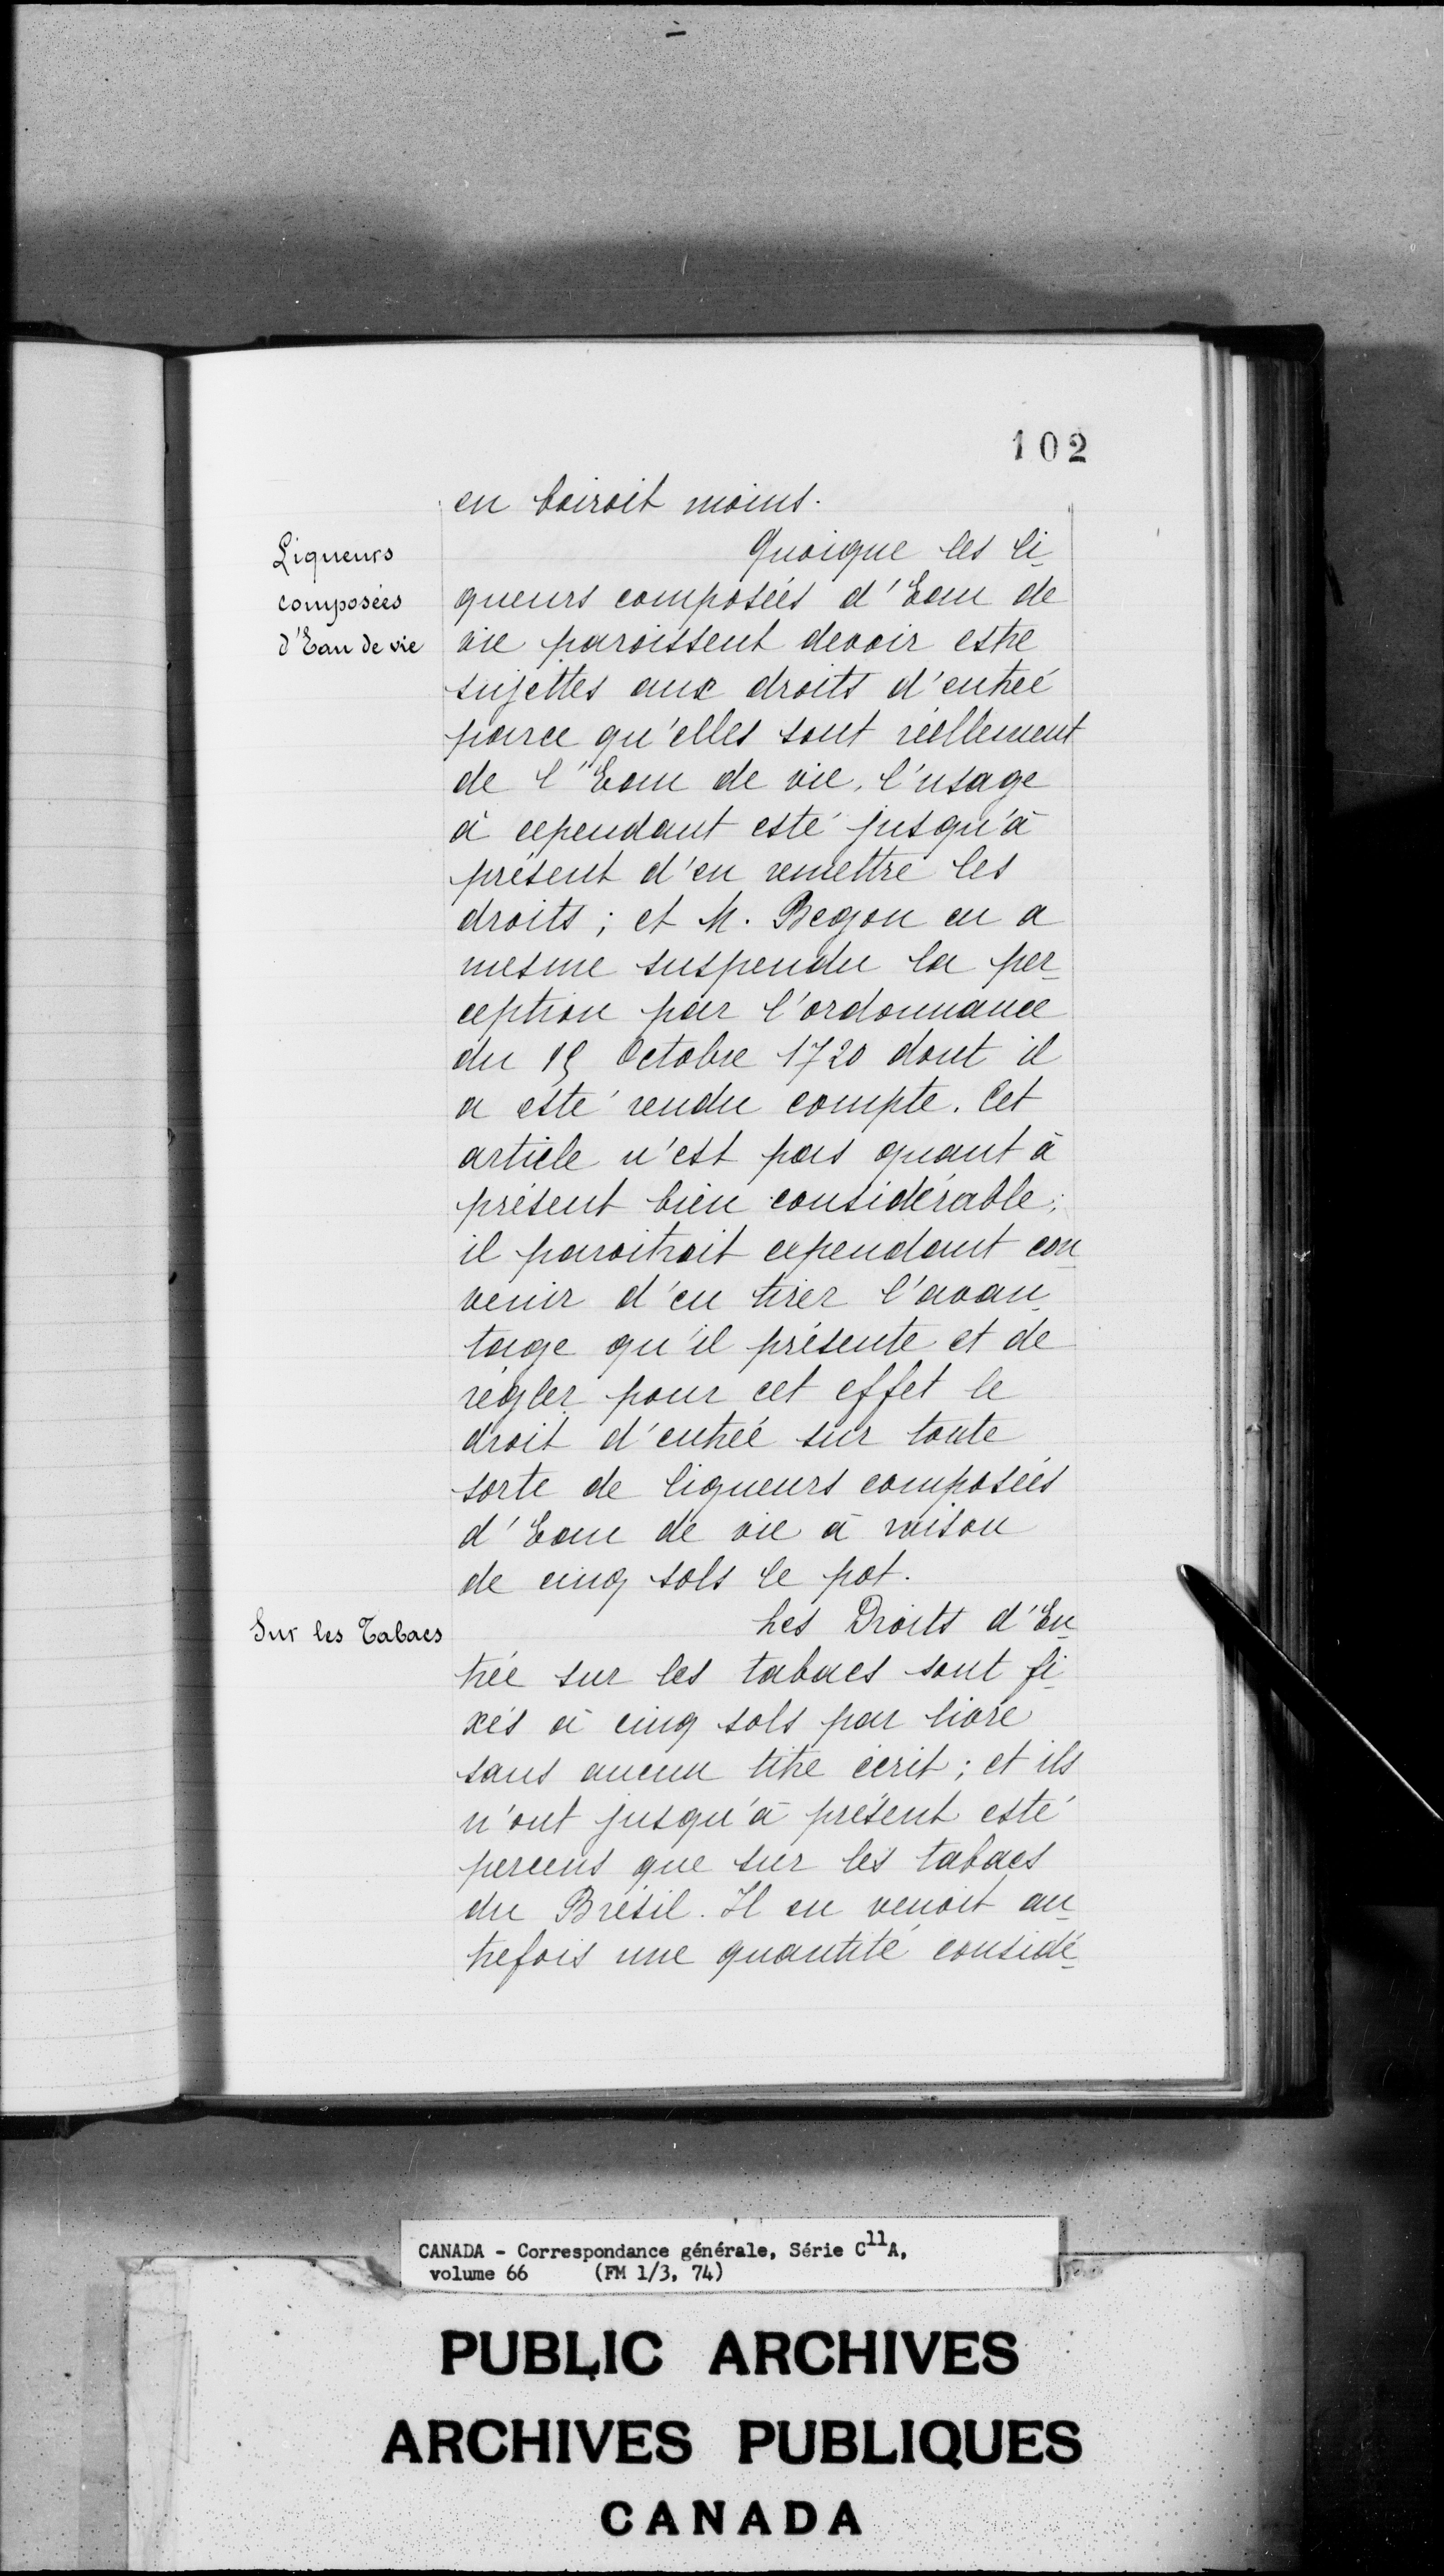 102
en boiroit moins.
Liqueurs
composées
d'Eau de vie
Quoique les li-
queurs composées d'Eau de
vie paroissent devoir estre
sujettes aux droits d'entrée
parce qu'elles sont réellement
de l'Eau de vie, l'usage
à cependant esté jusqu'à
présent d'en remettre les
droits ; et M. Begon en a
mesme suspendu la per-
ception par l'ordonnance
du Octobre 1720 dont il
a esté rendu compte. Cet
article n'est pas quant à
présent bien considérable ;
il paroitroit cependant con-
venir d'en tirer l'avan-
tage qu'il présente et de
régler pour cet effet le
droit d'entrée sur toute
sorte de liqueurs composées
d'Eau de vie à raison
de cinq sols le pot.
Sur les Tabacs
Les Droits d'En-
trée sur les tabacs sont fi-
xés à cinq sols par livre
sans aucun titre écrit ; et ils
n'ont jusqu'à présent esté
perceus que sur les tabacs
du Brésil. Il en venoit au-
trefois une quantité considé-
CANADA - Correspondance générale, Série C11A,
volume 66 (FM 1/3, 74)
PUBLIC ARCHIVES
ARCHIVES PUBLIQUES
CANADA